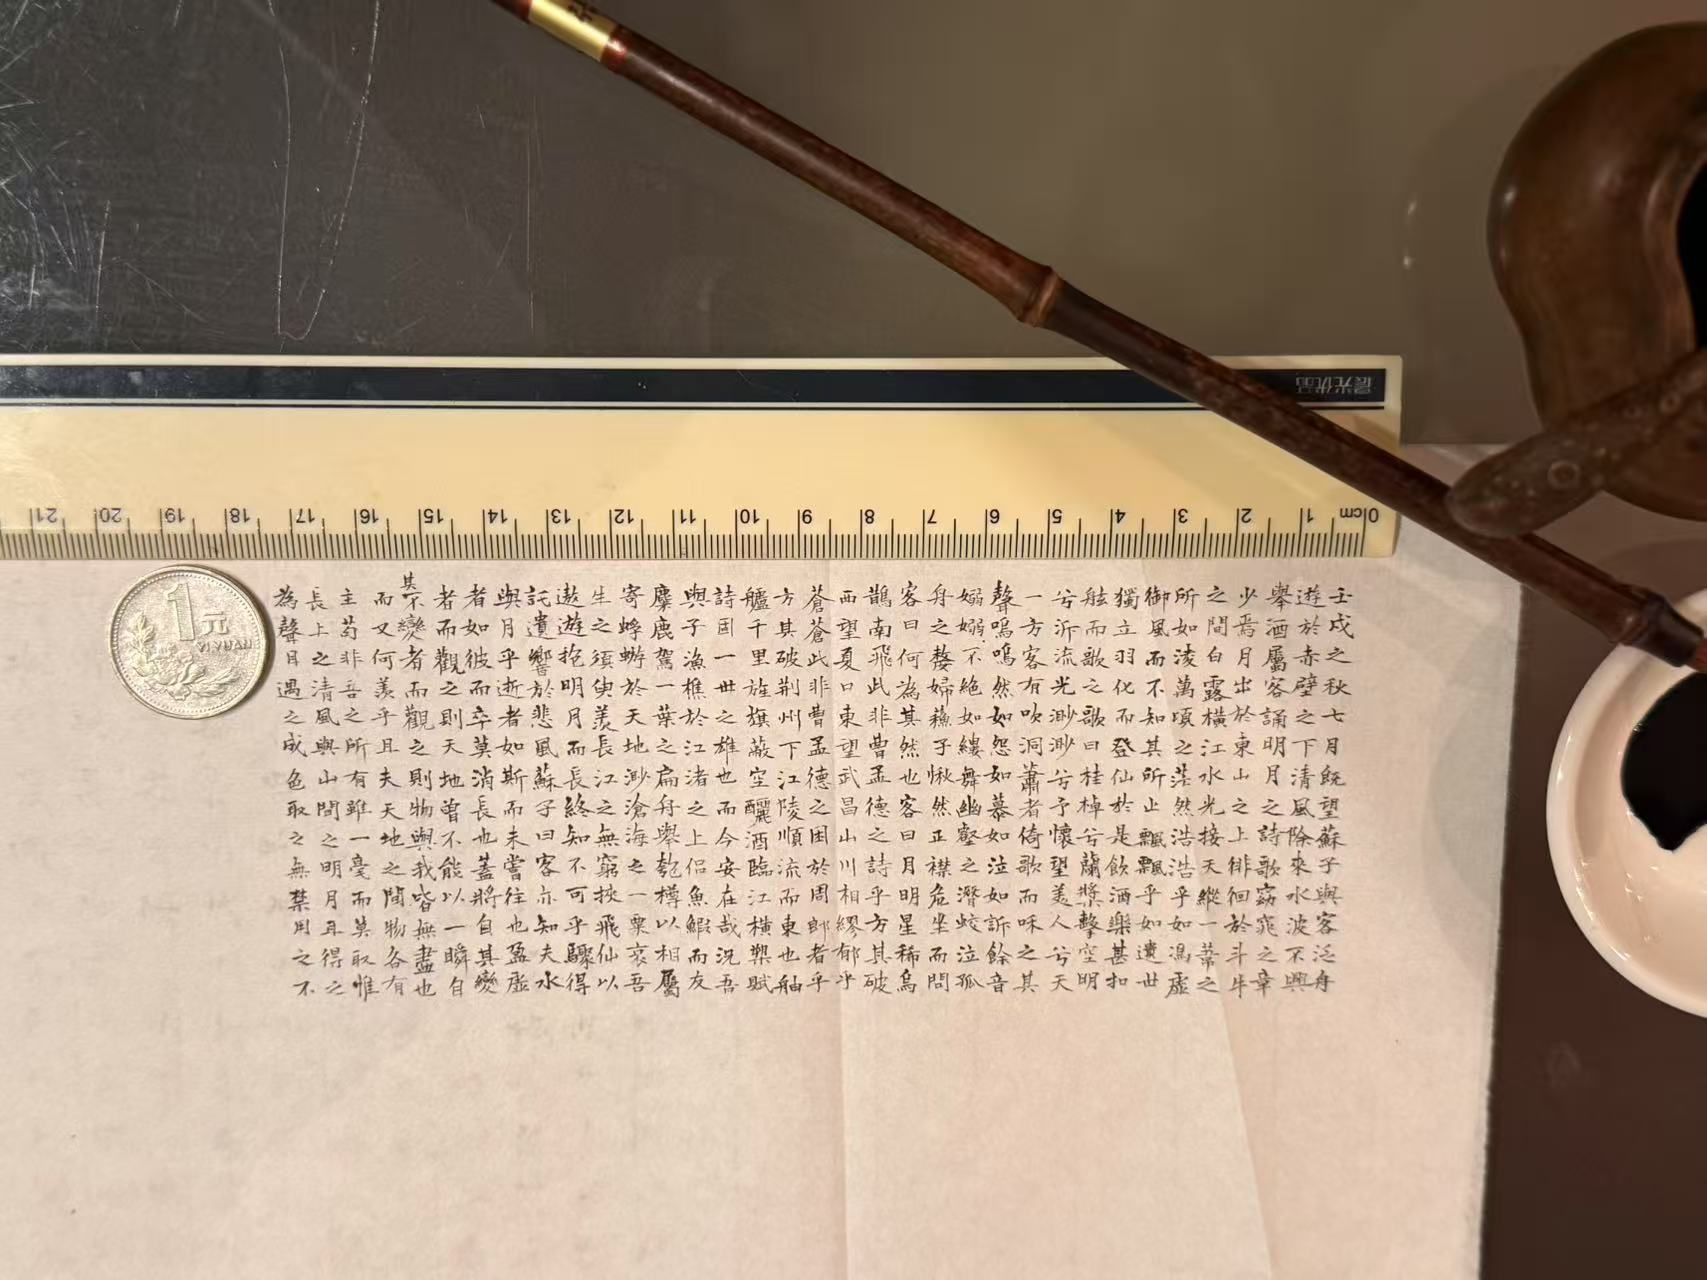 壬戌之秋七月既望蘇子與客泛舟
遊於赤壁之下清風除來水波不興
舉酒屬客誦明月之詩歌窈窕之章
少焉月出於東山之上徘徊於斗牛
之間白露橫江水光接天縱一葦之
所如淩萬頃之茫然浩浩乎如馮虛
御風而不知其所止飄飄乎如遺世
獨立羽化而登仙於是飲酒樂甚扣
舷而歌之歌曰桂棹兮蘭槳擊空明
兮泝流光渺渺兮予懷望美人兮天
一方客有吹洞蕭者倚歌而咊之其
聲嗚嗚然如怨如慕如泣如訴餘音
嫋嫋不絕如縷舞幽壑之潛蛟泣孤
舟之嫠婦蘇子愀然正襟危坐而問
客曰何為其然也客曰月明星稀烏
鵲南飛此非曹孟德之詩乎方其破
西望夏口東望武昌山川相繆郁乎
蒼蒼此非曹孟德之困於周郎者乎
方其破荊州下江陵順流而東也舳
艫千里旌旗蔽空釃酒臨江橫槊賦
詩固一世之雄也而今安在哉況吾
與子漁樵於江渚之上侶魚鰕而友
麋鹿駕一葉之扁舟舉匏樽以相屬
寄蜉蝣於天地渺滄海之一粟哀吾
生之須臾羨長江之無窮挾飛仙以
遨遊抱明月而長終知不可乎驟得
託遺響於悲風蘇子曰客亦知夫水
與月乎逝者如斯而未嘗往也盈虛
者如彼而卒莫消長也蓋將自其變
者而觀之則天地曾不能以一瞬自
其不變者而觀之則物與我皆無盡也
而又何羨乎且夫天地之間物各有
主苟非吾之所有雖一毫而莫取惟
長上之清風與山間之明月耳得之
為聲目遇之成色取之無禁用之不
晨光优品
0cm 1 2 3 4 5 6 7 8 9 10 11 12 13 14 15 16 17 18 19 20 21
1元
YI YUAN